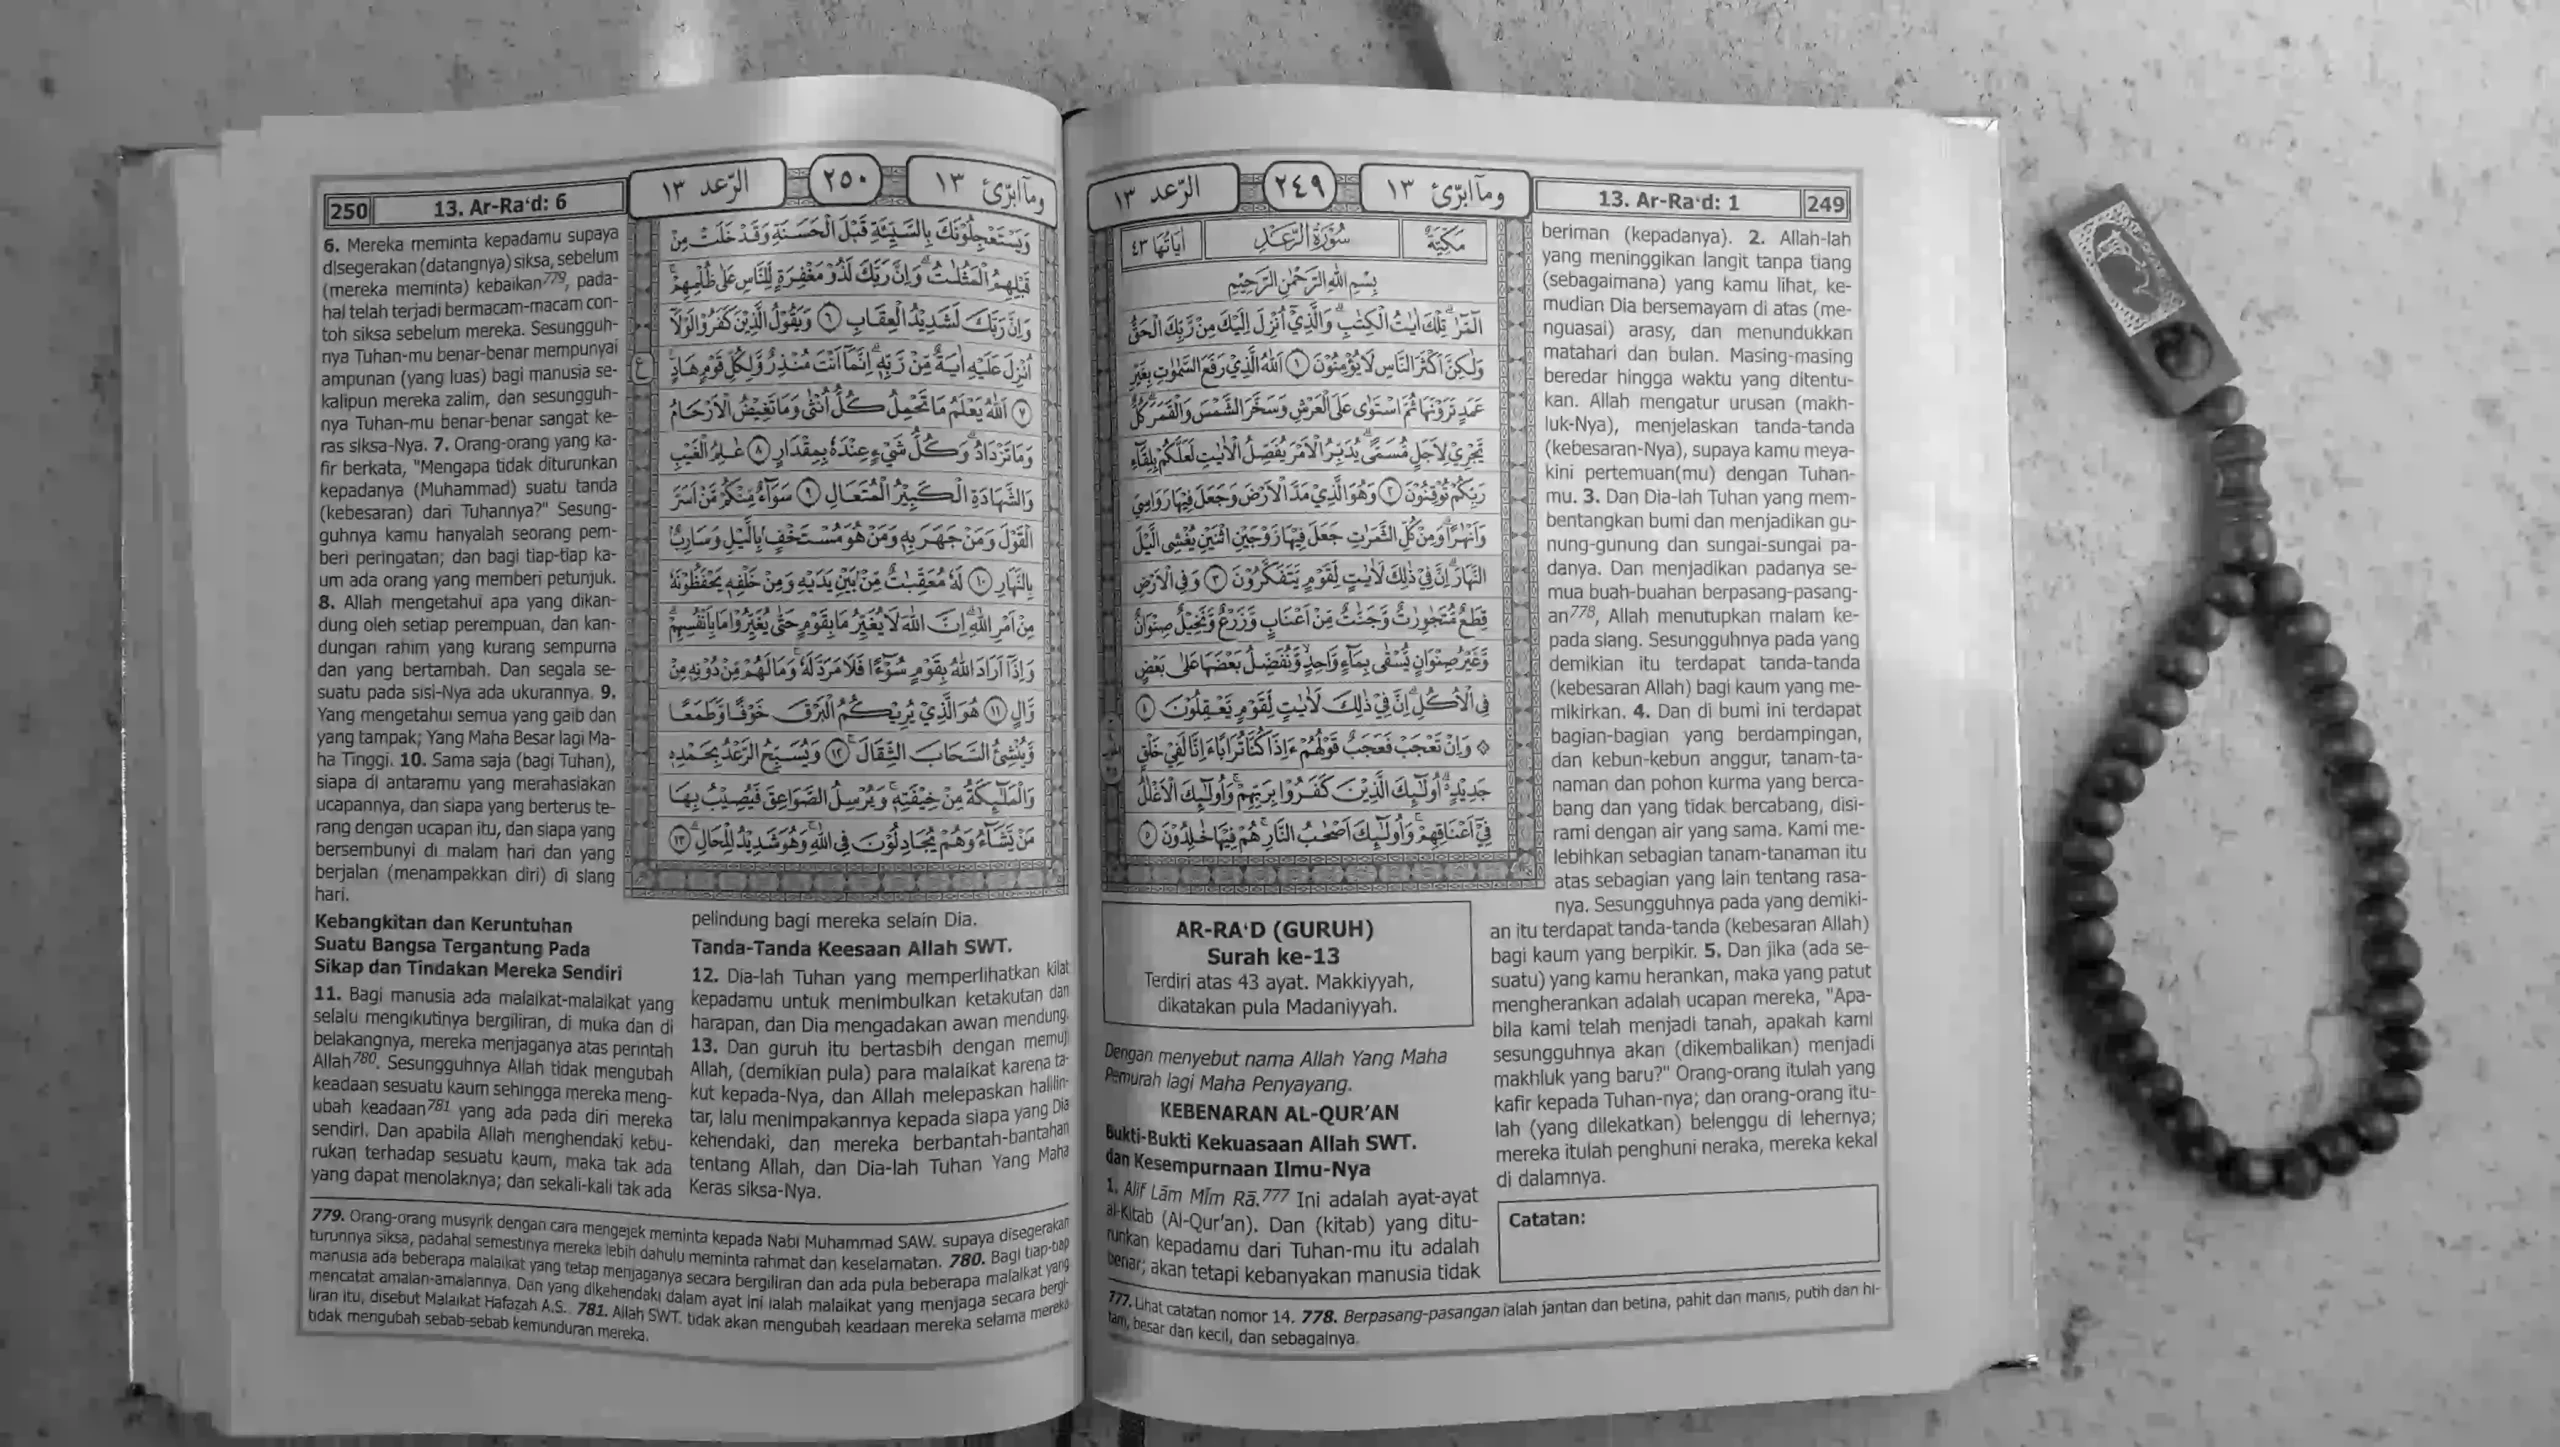 وَمَآ اُبَرِّئُ ١٣
٢٤٩
الرّعد ١٣
13. Ar-Ra‘d: 1
249
مَكِّيَّةٌ
سُوْرَةُ الرَّعْدِ
اٰيَاتُهَا ٤٣
بِسْمِ اللّٰهِ الرَّحْمٰنِ الرَّحِيْمِ
الۤمّۤرٰ ۗ تِلْكَ اٰيٰتُ الْكِتٰبِ ۗ وَالَّذِيْٓ اُنْزِلَ اِلَيْكَ مِنْ رَّبِّكَ الْحَقُّ
وَلٰكِنَّ اَكْثَرَ النَّاسِ لَا يُؤْمِنُوْنَ ١ اَللّٰهُ الَّذِيْ رَفَعَ السَّمٰوٰتِ بِغَيْرِ
عَمَدٍ تَرَوْنَهَا ثُمَّ اسْتَوٰى عَلَى الْعَرْشِ وَسَخَّرَ الشَّمْسَ وَالْقَمَرَ ۗ كُلٌّ
يَّجْرِيْ لِاَجَلٍ مُّسَمًّى ۗ يُدَبِّرُ الْاَمْرَ يُفَصِّلُ الْاٰيٰتِ لَعَلَّكُمْ بِلِقَاۤءِ
رَبِّكُمْ تُوْقِنُوْنَ ٢ وَهُوَ الَّذِيْ مَدَّ الْاَرْضَ وَجَعَلَ فِيْهَا رَوَاسِيَ
وَاَنْهٰرًا ۗ وَمِنْ كُلِّ الثَّمَرٰتِ جَعَلَ فِيْهَا زَوْجَيْنِ اثْنَيْنِ يُغْشِى الَّيْلَ
النَّهَارَ ۗ اِنَّ فِيْ ذٰلِكَ لَاٰيٰتٍ لِّقَوْمٍ يَّتَفَكَّرُوْنَ ٣ وَفِى الْاَرْضِ
قِطَعٌ مُّتَجٰوِرٰتٌ وَّجَنّٰتٌ مِّنْ اَعْنَابٍ وَّزَرْعٌ وَّنَخِيْلٌ صِنْوَانٌ
وَّغَيْرُ صِنْوَانٍ يُّسْقٰى بِمَاۤءٍ وَّاحِدٍ ۗ وَنُفَضِّلُ بَعْضَهَا عَلٰى بَعْضٍ
فِى الْاُكُلِ ۗ اِنَّ فِيْ ذٰلِكَ لَاٰيٰتٍ لِّقَوْمٍ يَّعْقِلُوْنَ ٤
۞ وَاِنْ تَعْجَبْ فَعَجَبٌ قَوْلُهُمْ ءَاِذَا كُنَّا تُرَابًا ءَاِنَّا لَفِيْ خَلْقٍ
جَدِيْدٍ ۗ اُولٰۤىِٕكَ الَّذِيْنَ كَفَرُوْا بِرَبِّهِمْ ۚ وَاُولٰۤىِٕكَ الْاَغْلٰلُ
فِيْٓ اَعْنَاقِهِمْ ۚ وَاُولٰۤىِٕكَ اَصْحٰبُ النَّارِ ۚ هُمْ فِيْهَا خٰلِدُوْنَ ٥
AR-RA‘D (GURUH)
Surah ke-13
Terdiri atas 43 ayat. Makkiyyah,
dikatakan pula Madaniyyah.
Dengan menyebut nama Allah Yang Maha
Pemurah lagi Maha Penyayang.
KEBENARAN AL-QUR’AN
Bukti-Bukti Kekuasaan Allah SWT.
dan Kesempurnaan Ilmu-Nya
1. Alif Lām Mīm Rā.777 Ini adalah ayat-ayat
al-Kitab (Al-Qur’an). Dan (kitab) yang ditu-
runkan kepadamu dari Tuhan-mu itu adalah
benar; akan tetapi kebanyakan manusia tidak
beriman (kepadanya). 2. Allah-lah
yang meninggikan langit tanpa tiang
(sebagaimana) yang kamu lihat, ke-
mudian Dia bersemayam di atas (me-
nguasai) arasy, dan menundukkan
matahari dan bulan. Masing-masing
beredar hingga waktu yang ditentu-
kan. Allah mengatur urusan (makh-
luk-Nya), menjelaskan tanda-tanda
(kebesaran-Nya), supaya kamu meya-
kini pertemuan(mu) dengan Tuhan-
mu. 3. Dan Dia-lah Tuhan yang mem-
bentangkan bumi dan menjadikan gu-
nung-gunung dan sungai-sungai pa-
danya. Dan menjadikan padanya se-
mua buah-buahan berpasang-pasang-
an778, Allah menutupkan malam ke-
pada siang. Sesungguhnya pada yang
demikian itu terdapat tanda-tanda
(kebesaran Allah) bagi kaum yang me-
mikirkan. 4. Dan di bumi ini terdapat
bagian-bagian yang berdampingan,
dan kebun-kebun anggur, tanam-ta-
naman dan pohon kurma yang berca-
bang dan yang tidak bercabang, disi-
rami dengan air yang sama. Kami me-
lebihkan sebagian tanam-tanaman itu
atas sebagian yang lain tentang rasa-
nya. Sesungguhnya pada yang demiki-
an itu terdapat tanda-tanda (kebesaran Allah)
bagi kaum yang berpikir. 5. Dan jika (ada se-
suatu) yang kamu herankan, maka yang patut
mengherankan adalah ucapan mereka, "Apa-
bila kami telah menjadi tanah, apakah kami
sesungguhnya akan (dikembalikan) menjadi
makhluk yang baru?" Orang-orang itulah yang
kafir kepada Tuhan-nya; dan orang-orang itu-
lah (yang dilekatkan) belenggu di lehernya;
mereka itulah penghuni neraka, mereka kekal
di dalamnya.
Catatan:
777. Lihat catatan nomor 14. 778. Berpasang-pasangan ialah jantan dan betina, pahit dan manis, putih dan hi-
tam, besar dan kecil, dan sebagainya.
وَمَآ اُبَرِّئُ ١٣
٢٥٠
الرّعد ١٣
250
13. Ar-Ra‘d: 6
وَيَسْتَعْجِلُوْنَكَ بِالسَّيِّئَةِ قَبْلَ الْحَسَنَةِ وَقَدْ خَلَتْ مِنْ
قَبْلِهِمُ الْمَثُلٰتُ ۗ وَاِنَّ رَبَّكَ لَذُوْ مَغْفِرَةٍ لِّلنَّاسِ عَلٰى ظُلْمِهِمْ ۚ
وَاِنَّ رَبَّكَ لَشَدِيْدُ الْعِقَابِ ٦ وَيَقُوْلُ الَّذِيْنَ كَفَرُوْا لَوْلَآ
اُنْزِلَ عَلَيْهِ اٰيَةٌ مِّنْ رَّبِّهٖ ۗ اِنَّمَآ اَنْتَ مُنْذِرٌ وَّلِكُلِّ قَوْمٍ هَادٍ
ع
٧ اَللّٰهُ يَعْلَمُ مَا تَحْمِلُ كُلُّ اُنْثٰى وَمَا تَغِيْضُ الْاَرْحَامُ
وَمَا تَزْدَادُ ۗ وَكُلُّ شَيْءٍ عِنْدَهٗ بِمِقْدَارٍ ٨ عٰلِمُ الْغَيْبِ
وَالشَّهَادَةِ الْكَبِيْرُ الْمُتَعَالِ ٩ سَوَاۤءٌ مِّنْكُمْ مَّنْ اَسَرَّ
الْقَوْلَ وَمَنْ جَهَرَ بِهٖ وَمَنْ هُوَ مُسْتَخْفٍ بِالَّيْلِ وَسَارِبٌ
بِالنَّهَارِ ١٠ لَهٗ مُعَقِّبٰتٌ مِّنْ بَيْنِ يَدَيْهِ وَمِنْ خَلْفِهٖ يَحْفَظُوْنَهٗ
مِنْ اَمْرِ اللّٰهِ ۗ اِنَّ اللّٰهَ لَا يُغَيِّرُ مَا بِقَوْمٍ حَتّٰى يُغَيِّرُوْا مَا بِاَنْفُسِهِمْ ۗ
وَاِذَآ اَرَادَ اللّٰهُ بِقَوْمٍ سُوْۤءًا فَلَا مَرَدَّ لَهٗ ۚ وَمَا لَهُمْ مِّنْ دُوْنِهٖ مِنْ
وَّالٍ ١١ هُوَ الَّذِيْ يُرِيْكُمُ الْبَرْقَ خَوْفًا وَّطَمَعًا
وَّيُنْشِئُ السَّحَابَ الثِّقَالَ ۚ ١٢ وَيُسَبِّحُ الرَّعْدُ بِحَمْدِهٖ
وَالْمَلٰۤىِٕكَةُ مِنْ خِيْفَتِهٖ ۚ وَيُرْسِلُ الصَّوَاعِقَ فَيُصِيْبُ بِهَا
مَنْ يَّشَاۤءُ وَهُمْ يُجَادِلُوْنَ فِى اللّٰهِ ۚ وَهُوَ شَدِيْدُ الْمِحَالِ ۗ ١٣
6. Mereka meminta kepadamu supaya
disegerakan (datangnya) siksa, sebelum
(mereka meminta) kebaikan779, pada-
hal telah terjadi bermacam-macam con-
toh siksa sebelum mereka. Sesungguh-
nya Tuhan-mu benar-benar mempunyai
ampunan (yang luas) bagi manusia se-
kalipun mereka zalim, dan sesungguh-
nya Tuhan-mu benar-benar sangat ke-
ras siksa-Nya. 7. Orang-orang yang ka-
fir berkata, "Mengapa tidak diturunkan
kepadanya (Muhammad) suatu tanda
(kebesaran) dari Tuhannya?" Sesung-
guhnya kamu hanyalah seorang pem-
beri peringatan; dan bagi tiap-tiap ka-
um ada orang yang memberi petunjuk.
8. Allah mengetahui apa yang dikan-
dung oleh setiap perempuan, dan kan-
dungan rahim yang kurang sempurna
dan yang bertambah. Dan segala se-
suatu pada sisi-Nya ada ukurannya. 9.
Yang mengetahui semua yang gaib dan
yang tampak; Yang Maha Besar lagi Ma-
ha Tinggi. 10. Sama saja (bagi Tuhan),
siapa di antaramu yang merahasiakan
ucapannya, dan siapa yang berterus te-
rang dengan ucapan itu, dan siapa yang
bersembunyi di malam hari dan yang
berjalan (menampakkan diri) di siang
hari.
Kebangkitan dan Keruntuhan
Suatu Bangsa Tergantung Pada
Sikap dan Tindakan Mereka Sendiri
11. Bagi manusia ada malaikat-malaikat yang
selalu mengikutinya bergiliran, di muka dan di
belakangnya, mereka menjaganya atas perintah
Allah780. Sesungguhnya Allah tidak mengubah
keadaan sesuatu kaum sehingga mereka meng-
ubah keadaan781 yang ada pada diri mereka
sendiri. Dan apabila Allah menghendaki kebu-
rukan terhadap sesuatu kaum, maka tak ada
yang dapat menolaknya; dan sekali-kali tak ada
pelindung bagi mereka selain Dia.
Tanda-Tanda Keesaan Allah SWT.
12. Dia-lah Tuhan yang memperlihatkan kilat
kepadamu untuk menimbulkan ketakutan dan
harapan, dan Dia mengadakan awan mendung.
13. Dan guruh itu bertasbih dengan memuji
Allah, (demikian pula) para malaikat karena ta-
kut kepada-Nya, dan Allah melepaskan halilin-
tar, lalu menimpakannya kepada siapa yang Dia
kehendaki, dan mereka berbantah-bantahan
tentang Allah, dan Dia-lah Tuhan Yang Maha
Keras siksa-Nya.
779. Orang-orang musyrik dengan cara mengejek meminta kepada Nabi Muhammad SAW. supaya disegerakan
turunnya siksa, padahal semestinya mereka lebih dahulu meminta rahmat dan keselamatan. 780. Bagi tiap-tiap
manusia ada beberapa malaikat yang tetap menjaganya secara bergiliran dan ada pula beberapa malaikat yang
mencatat amalan-amalannya. Dan yang dikehendaki dalam ayat ini ialah malaikat yang menjaga secara bergi-
liran itu, disebut Malaikat Hafazah A.S.. 781. Allah SWT. tidak akan mengubah keadaan mereka selama mereka
tidak mengubah sebab-sebab kemunduran mereka.